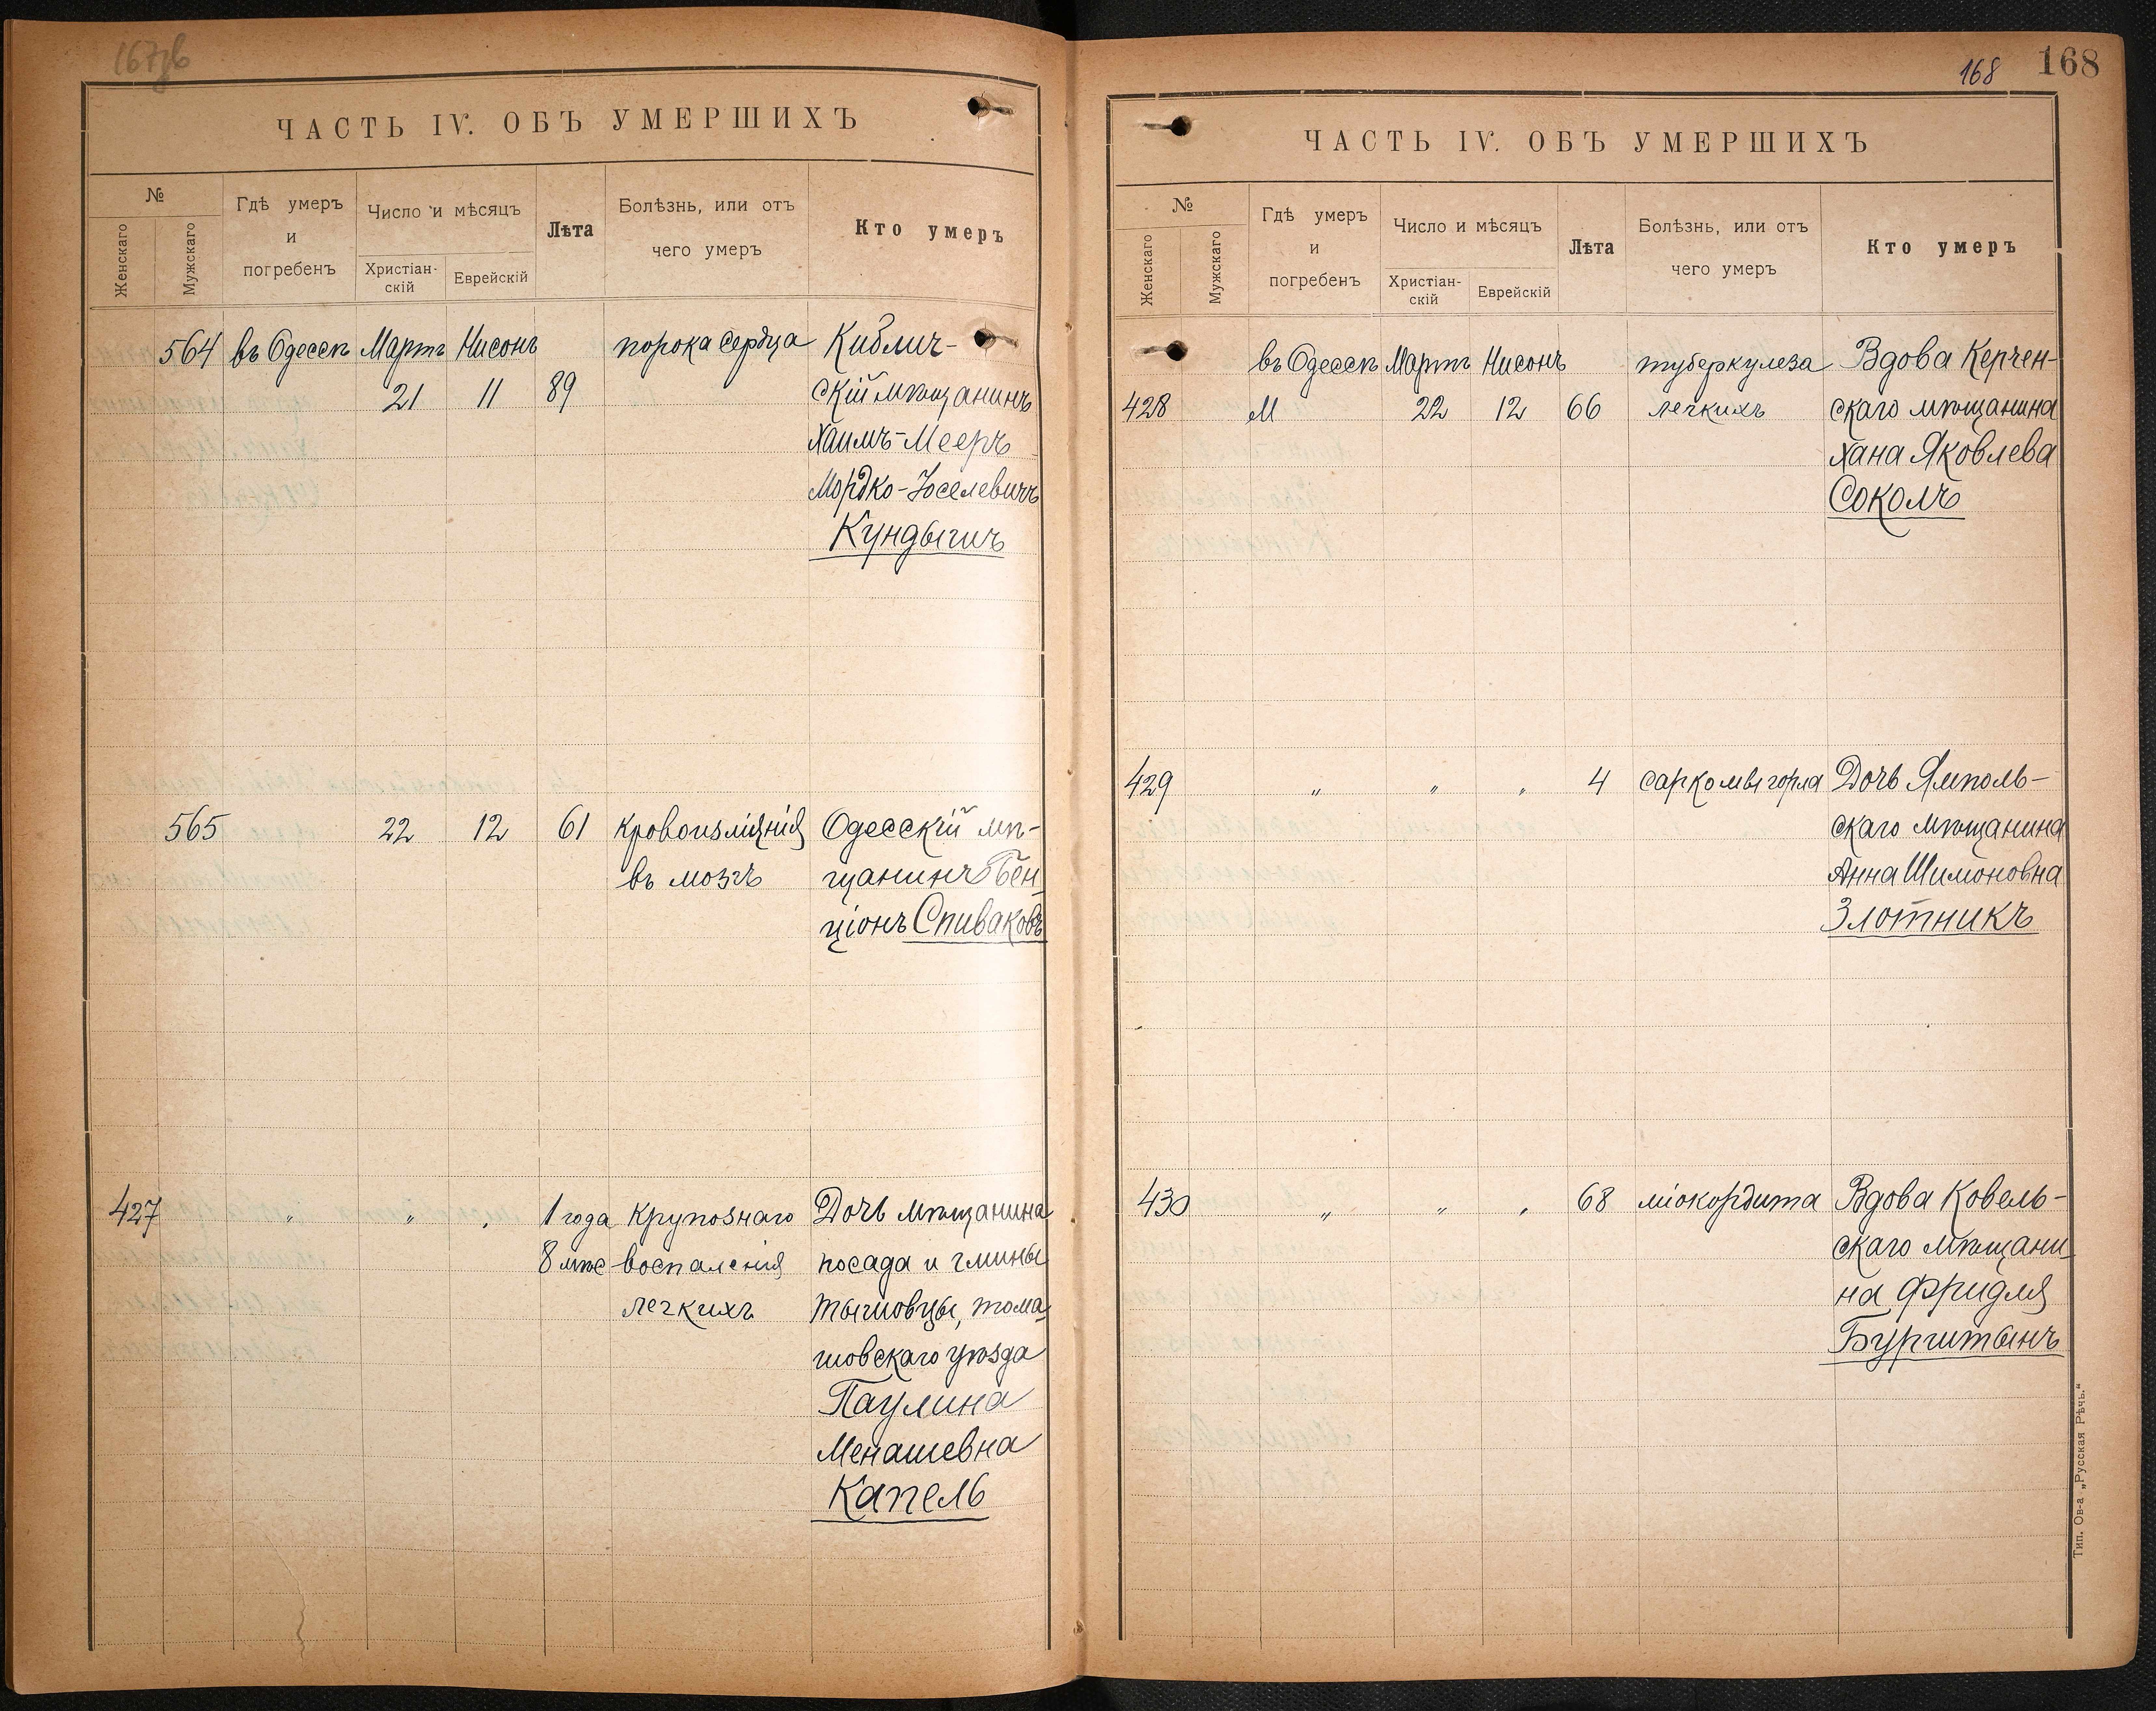 167об
ЧАСТЬ IV. ОБЪ УМЕРШИХЪ
№
Женскаго
Мужскаго
Гдѣ умеръ
и
погребенъ
Число и мѣсяцъ
Христіан-
скій
Еврейскій
Лѣта
Болѣзнь, или отъ
чего умеръ
Кто умеръ
564 въ Одессѣ Мартъ Нисонъ порока сердца Киблич-
21 11 89 скій мѣщанинъ
Хаимъ-Мееръ
Мордко-Іоселевичъ
Кундыгичъ
565 22 12 61 кровоизліянія Одесскій мѣ-
въ мозгъ щанинъ Бен-
ціонъ Спиваковъ
427 " " " 1 года крупознаго Дочь мѣщанина
8 мѣс воспаленія посада и гмины
легкихъ Тышовцы, тома-
шовскаго уѣзда
Паулина
Менашевна
Капель
168 168
ЧАСТЬ IV. ОБЪ УМЕРШИХЪ
№
Женскаго
Мужскаго
Гдѣ умеръ
и
погребенъ
Число и мѣсяцъ
Христіан-
скій
Еврейскій
Лѣта
Болѣзнь, или отъ
чего умеръ
Кто умеръ
въ Одессѣ Мартъ Нисонъ туберкулеза Вдова Керчен-
428 М 22 12 66 легкихъ скаго мѣщанина
Хана Яковлева
Соколъ
429 " " " 4 саркомы горла Дочь Ямполь-
скаго мѣщанина
Анна Шимоновна
Злотникъ
430 " " " 68 міокордита Вдова Ковель-
скаго мѣщани-
на Фридля
Бурштынъ
Тип. Ов-а „Русская Рѣчь.“